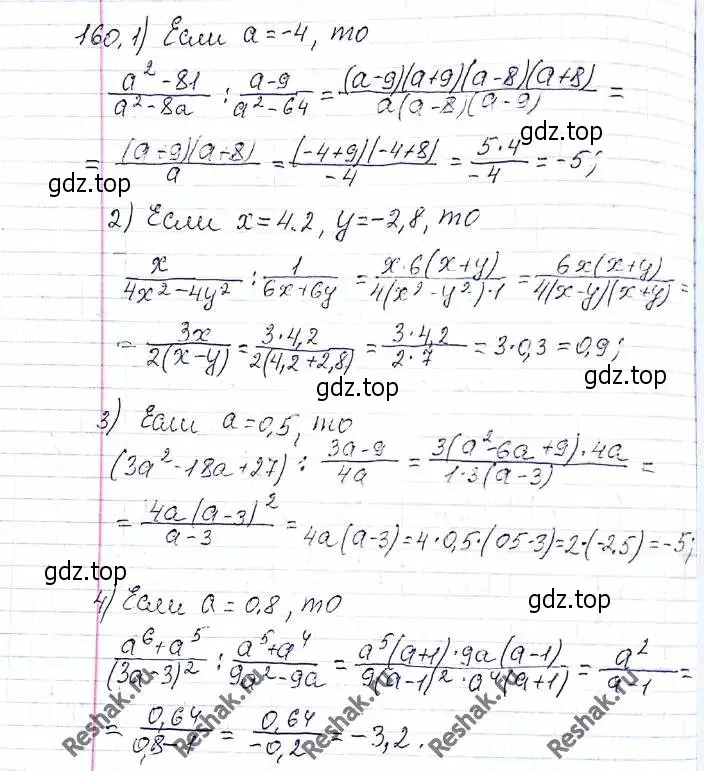 160. 1) Если a = -4, то
(a² - 81)/(a² - 8a) : (a - 9)/(a² - 64) = ((a-9)(a+9)(a-8)(a+8))/(a(a-8)(a-9)) =
= ((a+9)(a+8))/a = ((-4+9)(-4+8))/(-4) = (5·4)/(-4) = -5;
gdz.top
gdz.top
2) Если x = 4.2, y = -2,8, то
x/(4x² - 4y²) : 1/(6x+6y) = (x·6(x+y))/(4(x² - y²)·1) = (6x(x+y))/(4(x-y)(x+y)) =
= 3x/(2(x-y)) = (3·4,2)/(2(4,2+2,8)) = (3·4,2)/(2·7) = 3·0,3 = 0,9;
gdz.top
3) Если a = 0,5, то
(3a² - 18a + 27) : (3a - 9)/(4a) = (3(a² - 6a + 9)·4a)/(1·3(a-3)) =
= (4a(a-3)²)/(a-3) = 4a(a-3) = 4·0,5·(05-3) = 2·(-2.5) = -5;
gdz.top
gdz.top
4) Если a = 0.8, то
(a⁶ + a⁵)/(3a-3)² : (a⁵ + a⁴)/(9a² - 9a) = (a⁵(a+1)·9a(a-1))/(9(a-1)²·a⁴(a+1)) = a²/(a-1) =
= 0,64/(0,8-1) = 0,64/(-0,2) = -3,2.
Reshak.ru
Reshak.ru
Reshak.ru
Reshak.ru